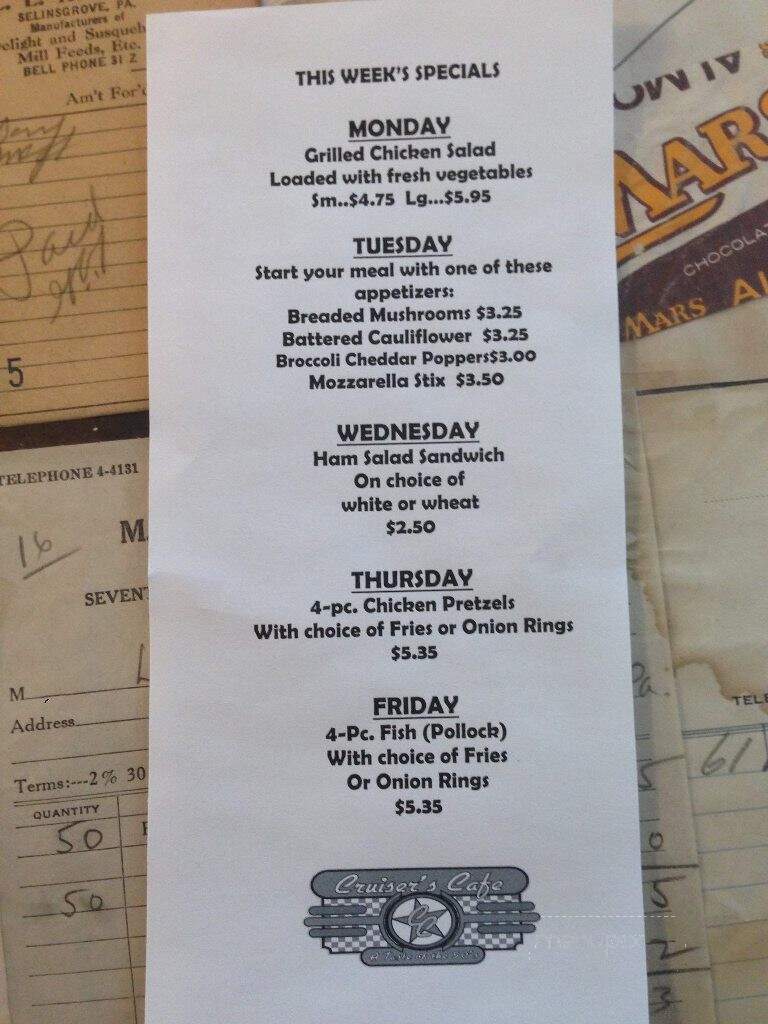 SELINSGROVE, PA.
Manufacturers of
Mill Feeds, Etc.
BELL PHONE 31 Z
Am't For'd
Paid
5
THIS WEEK'S SPECIALS
MONDAY
Grilled Chicken Salad
Loaded with fresh vegetables
Sm..$4.75 Lg...$5.95
TUESDAY
Start your meal with one of these
appetizers:
Breaded Mushrooms $3.25
Battered Cauliflower $3.25
Broccoli Cheddar Poppers$3.00
Mozzarella Stix $3.50
WEDNESDAY
Ham Salad Sandwich
On choice of
white or wheat
$2.50
THURSDAY
4-pc. Chicken Pretzels
With choice of Fries or Onion Rings
$5.35
FRIDAY
4-Pc. Fish (Pollock)
With choice of Fries
Or Onion Rings
$5.35
Cruiser's Cafe
TELEPHONE 4-4131
16
SEVEN
M
Address
Terms:---2% 30
QUANTITY
50
50
MARS
CHOCOLAT
MARS AL
TELE
61